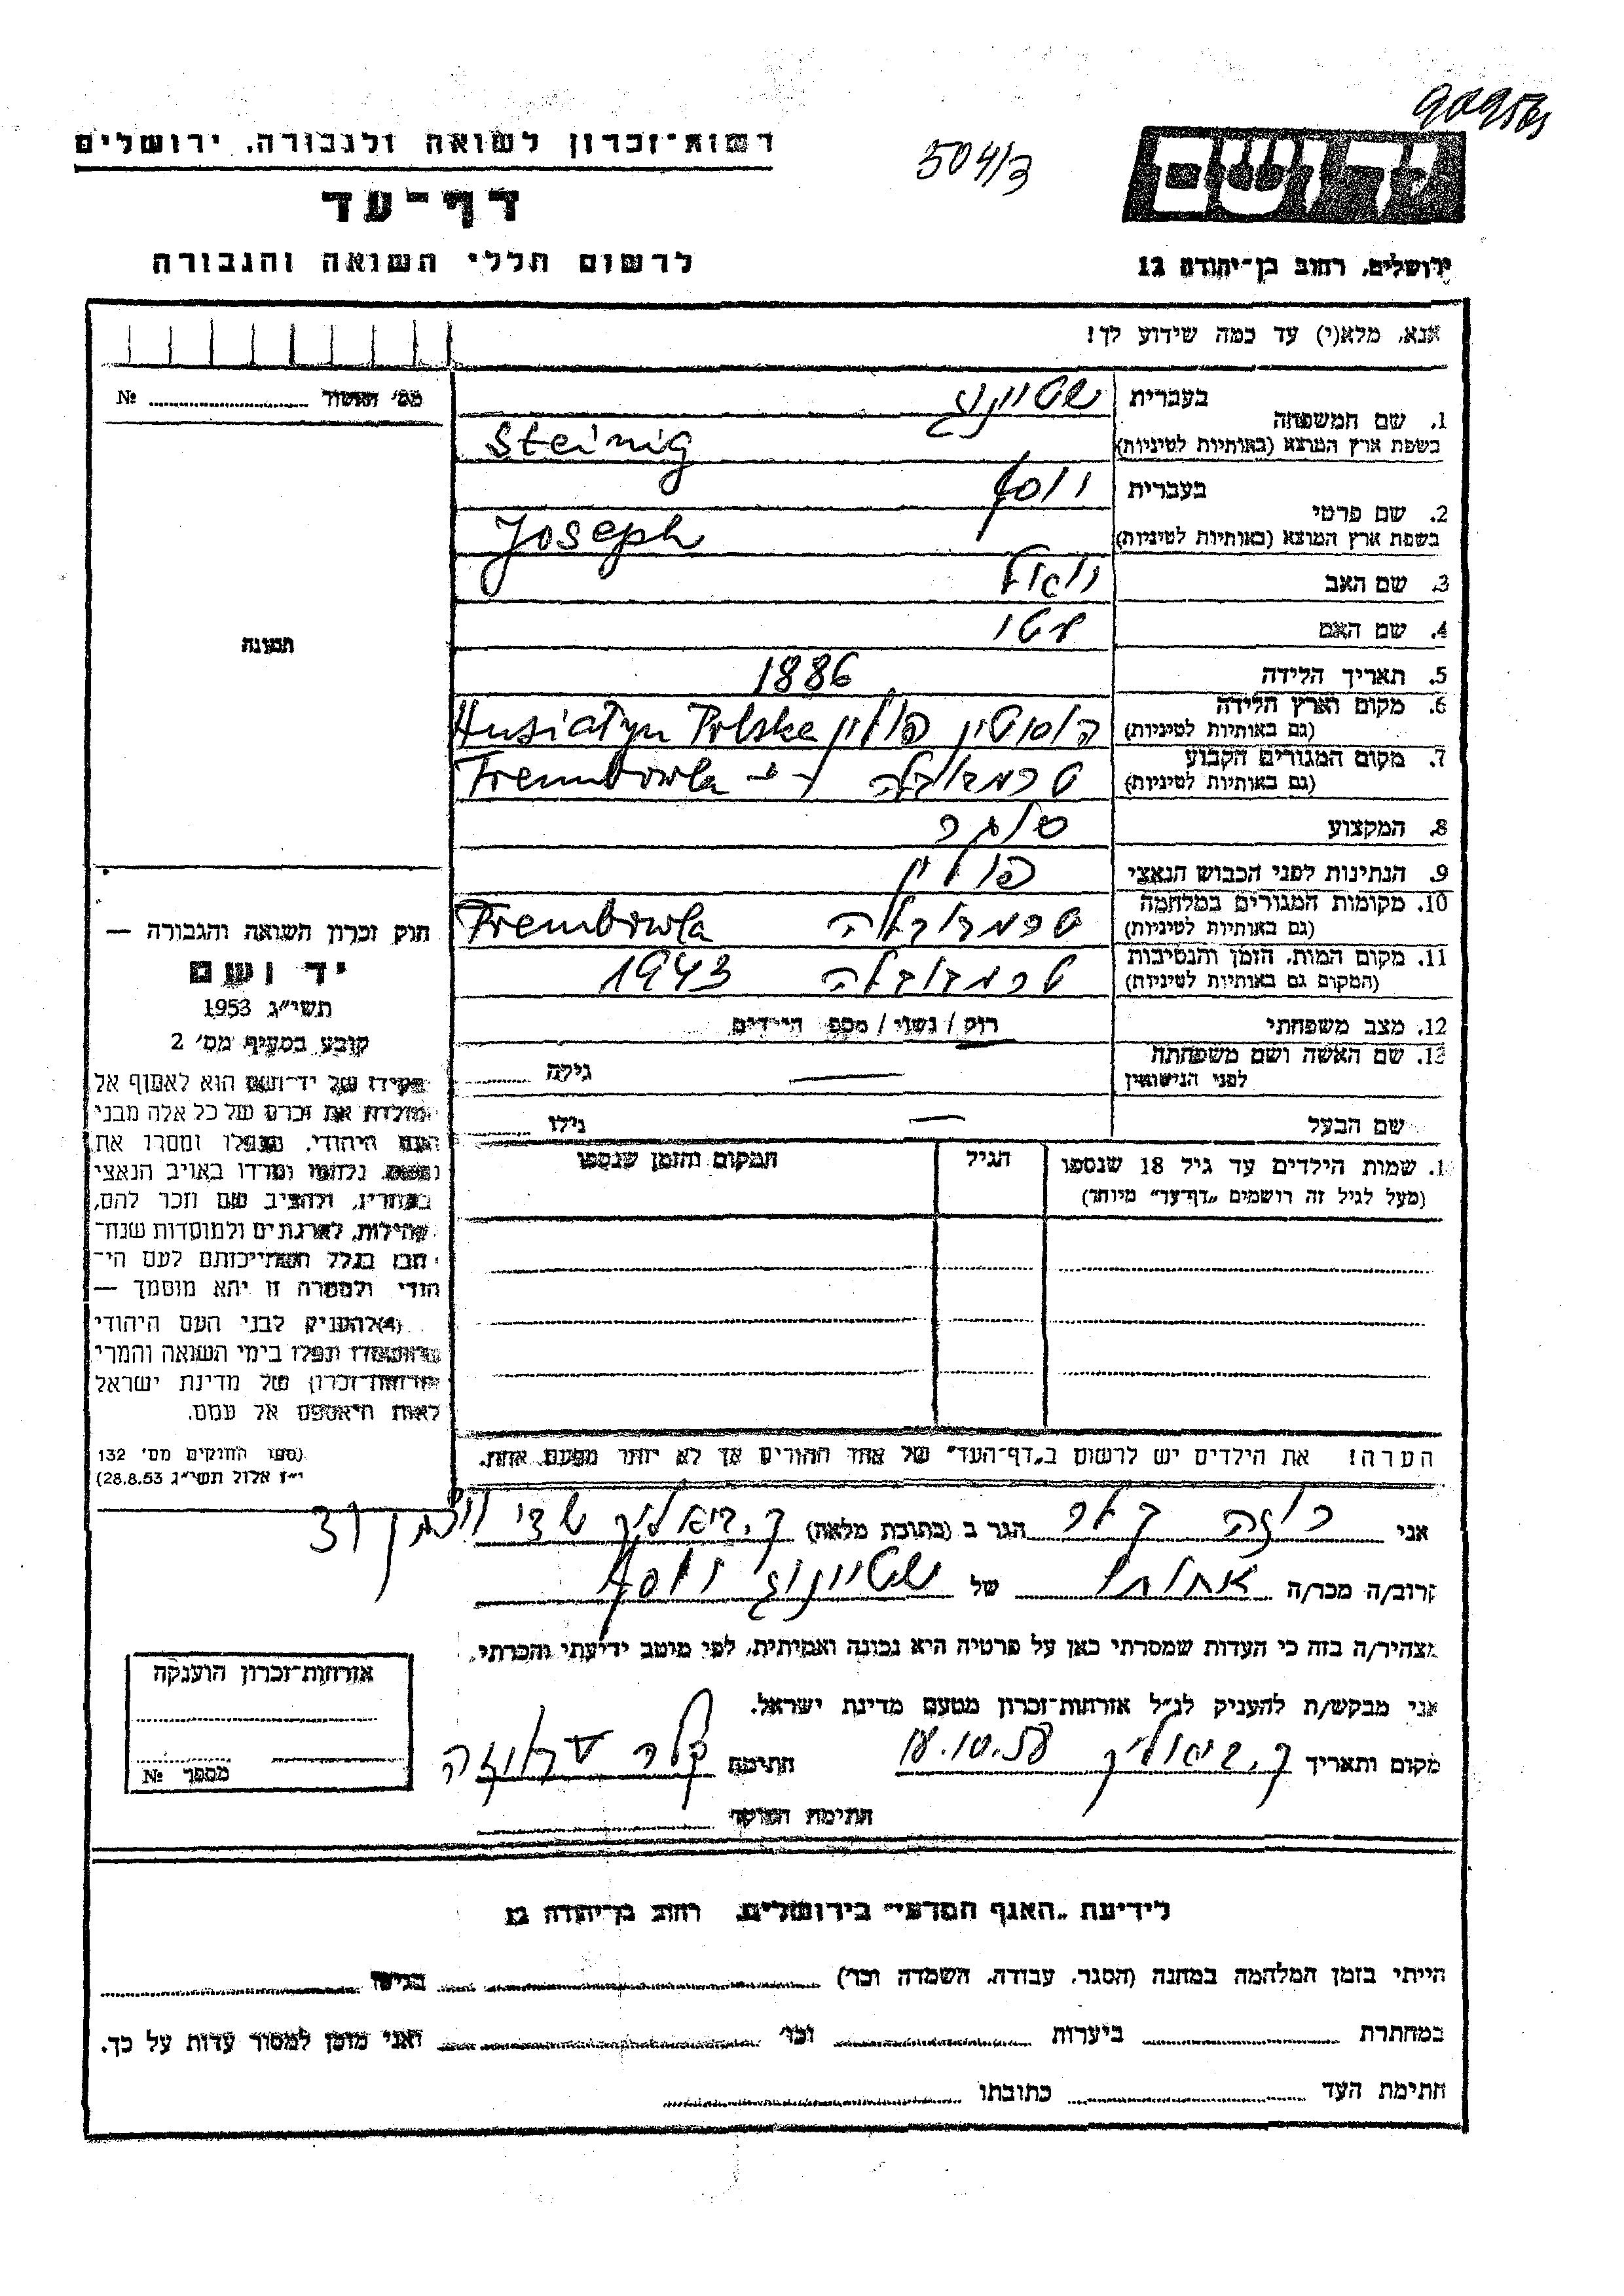 רשות־זכרון לשואה ולגבורה, ירושלים
504/3
דף־עד
יד ושם
לרשום חללי השואה והגבורה
ירושלים, רחוב בן־יהודה 12
אנא, מלא(י) עד כמה שידוע לך!
מס' №
1. שם המשפחה
בעברית שטייניג
בשפת ארץ המוצא (באותיות לטיניות) Steinig
2. שם פרטי
בעברית יוסף
בשפת ארץ המוצא (באותיות לטיניות) Joseph
3. שם האב
4. שם האם
5. תאריך הלידה 1886
6. מקום וארץ הלידה
(גם באותיות לטיניות) הוסיטין פולין Husiatyn Polska
7. מקום המגורים הקבוע
(גם באותיות לטיניות) טרמבובלה Trembowla
8. המקצוע סוחר
9. הנתינות לפני הכבוש הנאצי פולין
10. מקומות המגורים במלחמה
(גם באותיות לטיניות) טרמבובלה Trembowla
11. מקום המות, הזמן והנסיבות
(המקום גם באותיות לטיניות) טרמבובלה 1943
12. מצב משפחתי רווק / נשוי / מספר הילדים
13. שם האשה ושם משפחתה
לפני הנישואין — גילה
שם הבעל — גילו
שמות הילדים עד גיל 18 שנספו
(מעל לגיל זה רושמים „דף־עד" מיוחד)
הגיל
המקום והזמן שנספו
תמונה
חוק זכרון השואה והגבורה —
יד ושם
תשי"ג 1953
קובע בסעיף מס' 2
תפקידו של יד־ושם הוא לאסוף אל
המולדת את זכרם של כל אלה מבני
העם היהודי, שנפלו ומסרו את
נפשם, נלחמו ומרדו באויב הנאצי
ובעוזריו, ולהציב שם וזכר להם,
לקהילות, לארגונים ולמוסדות שנח־
רבו בגלל השתייכותם לעם הי־
הודי ולמטרה זו יהא מוסמך —
(4) להעניק לבני העם היהודי
שהושמדו ונפלו בימי השואה והמרי
אזרחות־זכרון של מדינת ישראל
לאות היאספם אל עמם.
(ספר החוקים מס' 132
י"ז אלול תשי"ג 28.8.53)
הערה! את הילדים יש לרשום ב„דף־העד" של אחד ההורים אך לא יותר מפעם אחת.
אני רוזה קלר הגר ב (כתובת מלאה) ק. ביאליק
קרוב/ה מכר/ה של שטייניג יוסף
מצהיר/ה בזה כי העדות שמסרתי כאן על פרטיה היא נכונה ואמיתית, לפי מיטב ידיעתי והכרתי.
אני מבקש/ת להעניק לנ"ל אזרחות־זכרון מטעם מדינת ישראל.
מקום ותאריך ק. ביאליק 18.10.58 חתימה קלר
חתימת
אזרחות־זכרון הוענקה
מספר №
לידיעת „האגף המדעי" בירושלים, רחוב בן־יהודה 12
הייתי בזמן המלחמה במחנה (הסגר, עבודה, השמדה וכו') בגיטו
במחתרת ביערות וכו' ואני מוכן למסור עדות על כך.
חתימת העד כתובתו